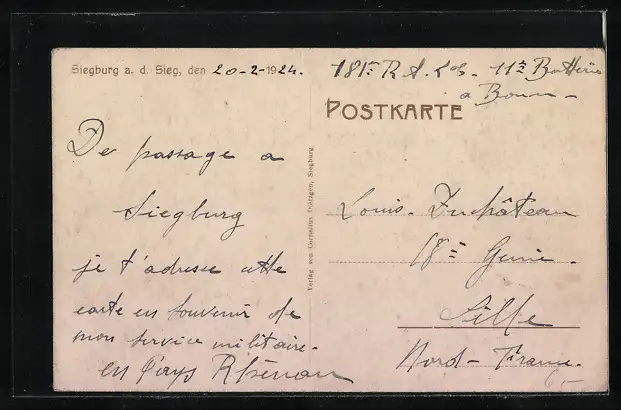 Siegburg a. d. Sieg, den 20-2-1924.
De passage a
Siegburg
je t'adresse cette
carte en souvenir de
mon service militaire.
en Pays Rhénan
Verlag von Cornelius Düttgen, Siegburg
181e R A. Lde - 11e Batterie
a Bonn -
POSTKARTE
Louis. Duchâteau
18e Genie.
Lille
Nord - France.
6.-